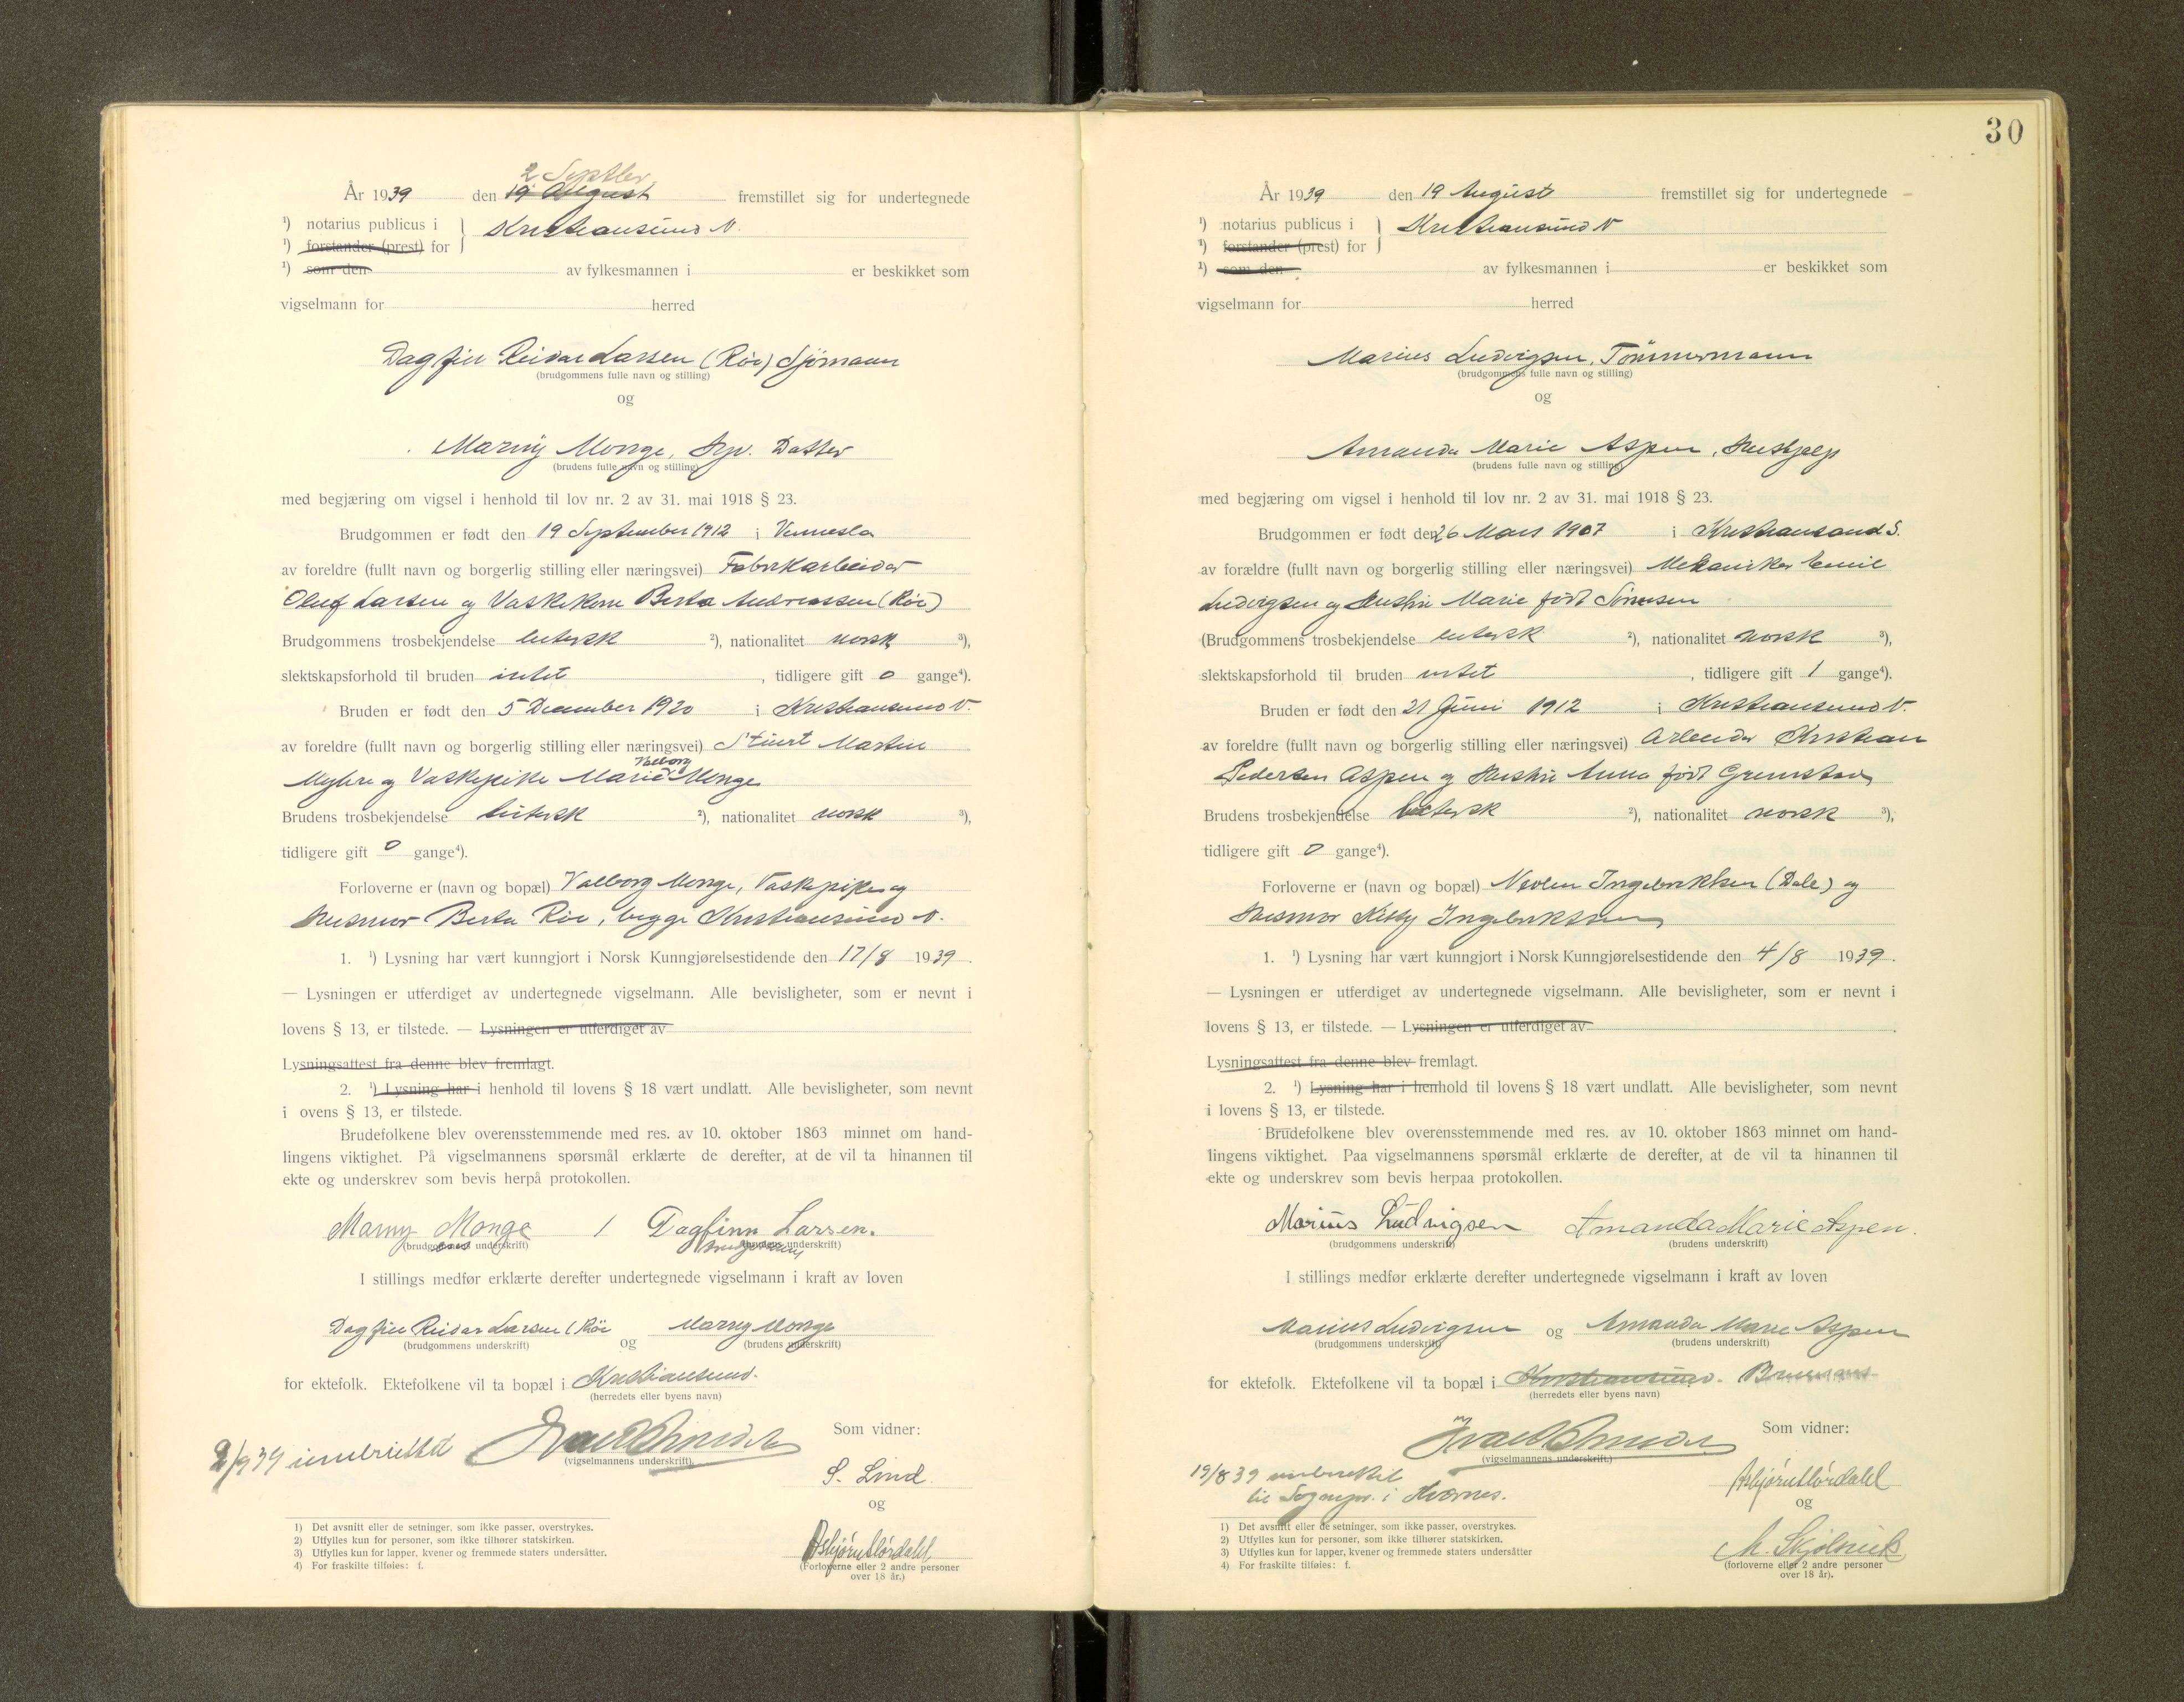 2 Septber
År 1939 den 19 August fremstillet sig for undertegnede
¹) notarius publicus i } Kristiansund N.
¹) forstander (prest) for
¹) som den av fylkesmannen i er beskikket som
vigselmann for herred
Dagfin Reidar Larsen (Röe) Sjömann
(brudgommens fulle navn og stilling)
og
Marny Monge, Datter
(brudens fulle navn og stilling)
med begjæring om vigsel i henhold til lov nr. 2 av 31. mai 1918 § 23.
Brudgommen er født den 19 September 1912 i Vennesla
av foreldre (fullt navn og borgerlig stilling eller næringsvei) Fabrikarbeider
Oluf Larsen og Vaskekone Berta Andreassen (Röe)
Brudgommens trosbekjendelse lutersk ²), nationalitet norsk ³),
slektskapsforhold til bruden intet , tidligere gift 0 gange⁴).
Bruden er født den 5 December 1920 i Kristiansund N.
av foreldre (fullt navn og borgerlig stilling eller næringsvei) Stuert Martin
Valborg
Myhre og Vaskepike Marie Monge
Brudens trosbekjendelse lutersk ²), nationalitet norsk ³),
tidligere gift 0 gange⁴).
Forloverne er (navn og bopæl) Valborg Monge, Vaskepike og
Husmor Berta Röe, begge Kristiansund N.
1. ¹) Lysning har vært kunngjort i Norsk Kunngjørelsestidende den 17/8 1939.
— Lysningen er utferdiget av undertegnede vigselmann. Alle bevisligheter, som er nevnt i
lovens § 13, er tilstede. — Lysningen er utferdiget av
Lysningsattest fra denne blev fremlagt.
2. ¹) Lysning har i henhold til lovens § 18 vært undlatt. Alle bevisligheter, som nevnt
i ovens § 13, er tilstede.
Brudefolkene blev overensstemmende med res. av 10. oktober 1863 minnet om hand-
lingens viktighet. På vigselmannens spørsmål erklærte de derefter, at de vil ta hinannen til
ekte og underskrev som bevis herpå protokollen.
Marny Monge / Dagfinn Larsen.
(brudgommens underskrift) (brudens underskrift)
I stillings medfør erklærte derefter undertegnede vigselmann i kraft av loven
Dagfin Reidar Larsen (Röe og Marny Monge
(brudgommens underskrift) (brudens underskrift)
for ektefolk. Ektefolkene vil ta bopæl i Kristiansund.
(herredets eller byens navn)
Som vidner:
2/9 39 innberettet
(vigselmannens underskrift).
S. Lind.
og
Asbjörn Nordahl
(Forloverne eller 2 andre personer
over 18 år.)
1) Det avsnitt eller de setninger, som ikke passer, overstrykes.
2) Utfylles kun for personer, som ikke tilhører statskirken.
3) Utfylles kun for lapper, kvener og fremmede staters undersåtter.
4) For fraskilte tilføies: f.
30
År 1939 den 19 August fremstillet sig for undertegnede
¹) notarius publicus i } Kristiansund N
¹) forstander (prest) for
¹) som den av fylkesmannen i er beskikket som
vigselmann for herred
Marius Ludvigsen, Tömmermann
(brudgommens fulle navn og stilling)
og
Amanda Marie Aspen, Hushjelp
(brudens fulle navn og stilling)
med begjæring om vigsel i henhold til lov nr. 2 av 31. mai 1918 § 23.
Brudgommen er født den 26 Mars 1907 i Kristiansand S.
av forældre (fullt navn og borgerlig stilling eller næringsvei) Mekaniker Emil
Ludvigsen og Hustru Marie født Sörensen
(Brudgommens trosbekjendelse lutersk ²), nationalitet norsk ³),
slektskapsforhold til bruden intet , tidligere gift 1 gange⁴).
Bruden er født den 21 Juni 1912 i Kristiansund N.
av foreldre (fullt navn og borgerlig stilling eller næringsvei) Arbeider Kristian
Pedersen Aspen og Hustru Anna født Gremstad
Brudens trosbekjendelse lutersk ²), nationalitet norsk ³),
tidligere gift 0 gange⁴).
Forloverne er (navn og bopæl) Ingebriktsen (Dale) og
Husmor Kitty Ingebriktsen
1. ¹) Lysning har vært kunngjort i Norsk Kunngjørelsestidende den 4/8 1939.
— Lysningen er utferdiget av undertegnede vigselmann. Alle bevisligheter, som er nevnt i
lovens § 13, er tilstede. — Lysningen er utferdiget av .
Lysningsattest fra denne blev fremlagt.
2. ¹) Lysning har i henhold til lovens § 18 vært undlatt. Alle bevisligheter, som nevnt
i lovens § 13, er tilstede.
Brudefolkene blev overensstemmende med res. av 10. oktober 1863 minnet om hand-
lingens viktighet. Paa vigselmannens spørsmål erklærte de derefter, at de vil ta hinannen til
ekte og underskrev som bevis herpaa protokollen.
Marius Ludvigsen Amanda Marie Aspen.
(brudgommens underskrift) (brudens underskrift)
I stillings medfør erklærte derefter undertegnede vigselmann i kraft av loven
Marius Ludvigsen og Amanda Marie Aspen
(brudgommens underskrift) (brudens underskrift)
for ektefolk. Ektefolkene vil ta bopæl i Kristiansund.
(herredets eller byens navn)
Som vidner:
(vigselmannens underskrift.)
19/8 39 innberettet
til Sognepr. i Kvernes.
Asbjörn Nordahl
og
M. Skjölsvik
(forloverne eller 2 andre personer
over 18 år).
1) Det avsnitt eller de setninger, som ikke passer, overstrykes.
2) Utfylles kun for personer, som ikke tilhører statskirken.
3) Utfylles kun for lapper, kvener og fremmede staters undersåtter
4) For fraskilte tilføies: f.